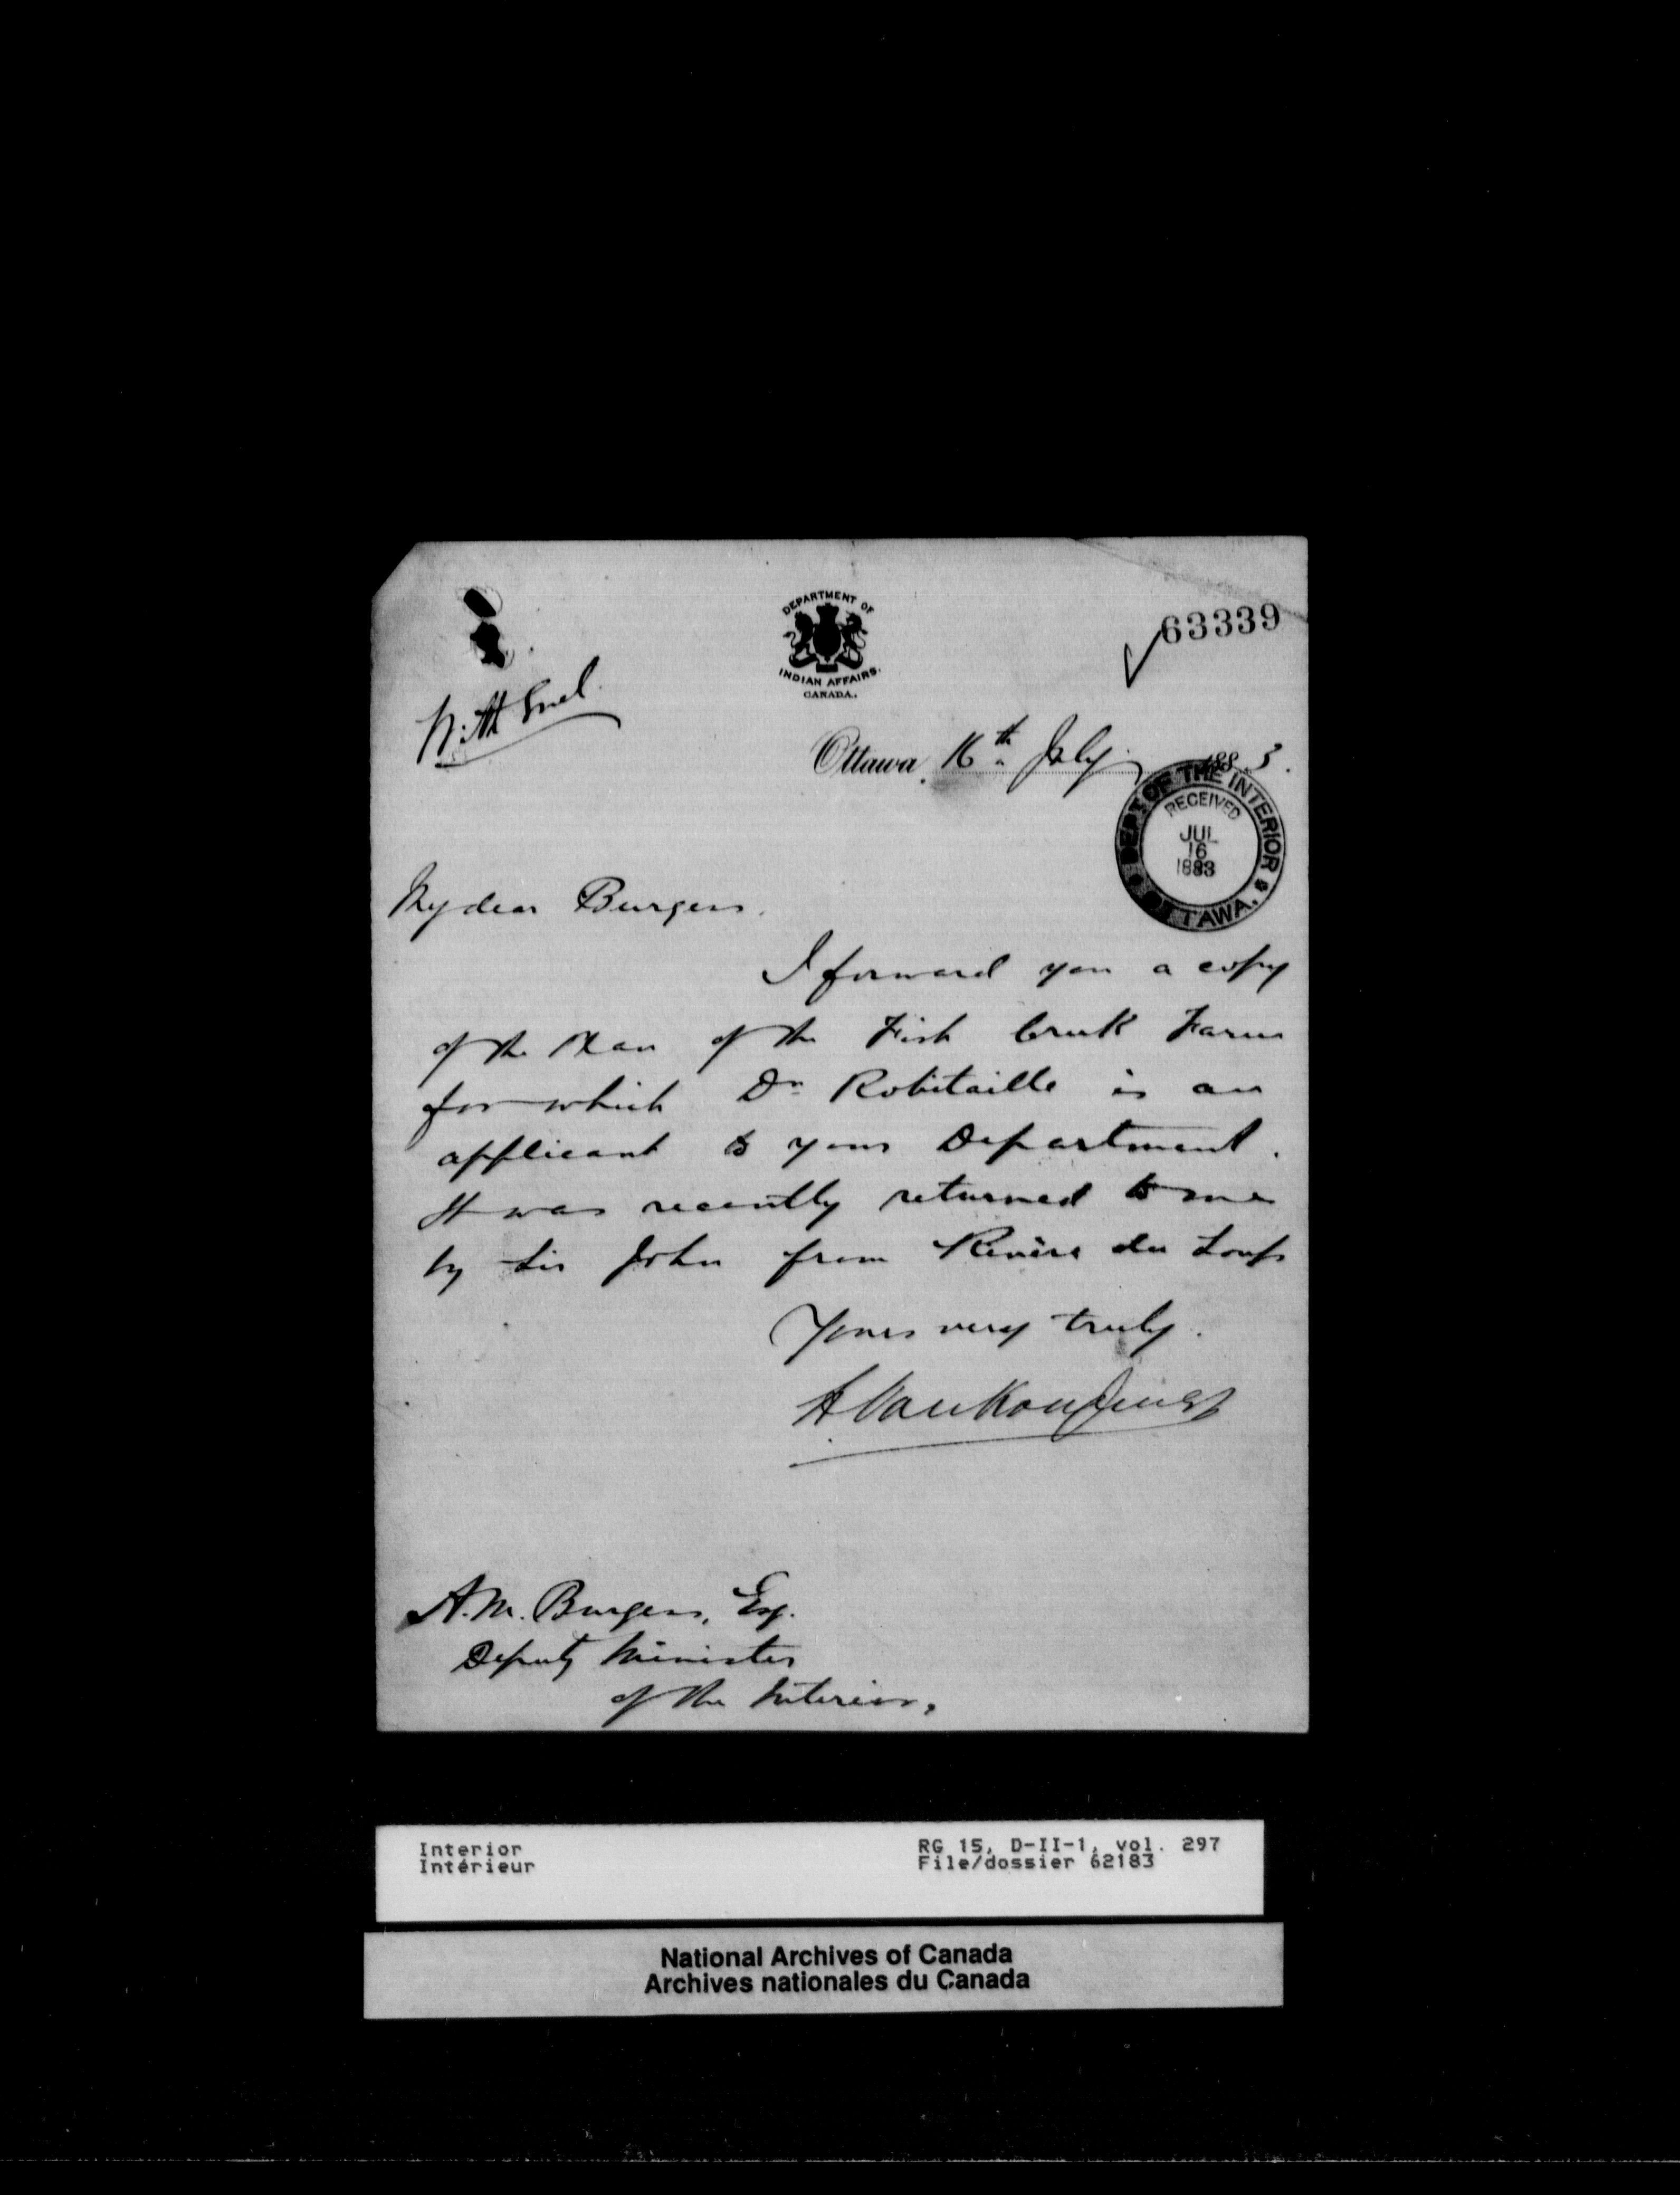 63339
DEPARTMENT OF
INDIAN AFFAIRS.
CANADA.
With Encl
Ottawa, 16th July 1883.
DEPT. OF THE INTERIOR
RECEIVED
JUL
16
1883
OTTAWA.
My dear Burgess,
I forward you a copy
of the Plan of the Fish Creek Farm
for which Dr Robitaille is an
applicant to your Department.
It was recently returned to me
by Sir John from Rivière du Loup
Yours very truly.
L VanKoughnet
A.M. Burgess, Esq.
Deputy Minister
of the Interior,
Interior
Intérieur
RG 15, D-II-1, vol. 297
File/dossier 62183
National Archives of Canada
Archives nationales du Canada